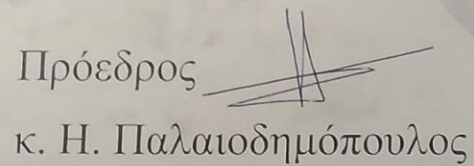 Πρόεδρος
κ. Η. Παλαιοδημόπουλος